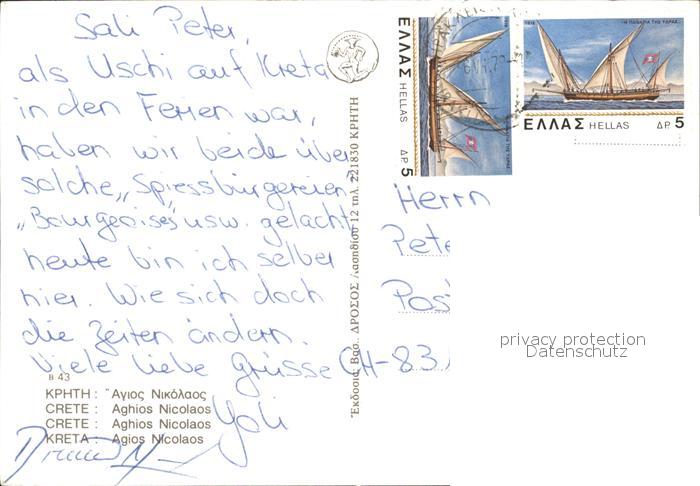 Sali Peter,
als Uschi auf Kreta
in den Ferien war,
haben wir beide über
solche „Spiessbürgereien",
„Bourgeoises" usw. gelacht
heute bin ich selber
hier. Wie sich doch
die Zeiten ändern.
Viele liebe Grüsse
Yoli
B 43
ΚΡΗΤΗ : Ἅγιος Νικόλαος
CRETE : Aghios Nicolaos
CRETE : Aghios Nicolaos
KRETA : Agios Nicolaos
Ἔκδοσις Βασ. ΔΡΟΣΟΣ 12 τηλ. 221830 ΚΡΗΤΗ
ΕΛΛΑΣ HELLAS ΔΡ 5
ΕΛΛΑΣ HELLAS ΔΡ 5
Herrn
Pete
Pos
CH-83
privacy protection
Datenschutz